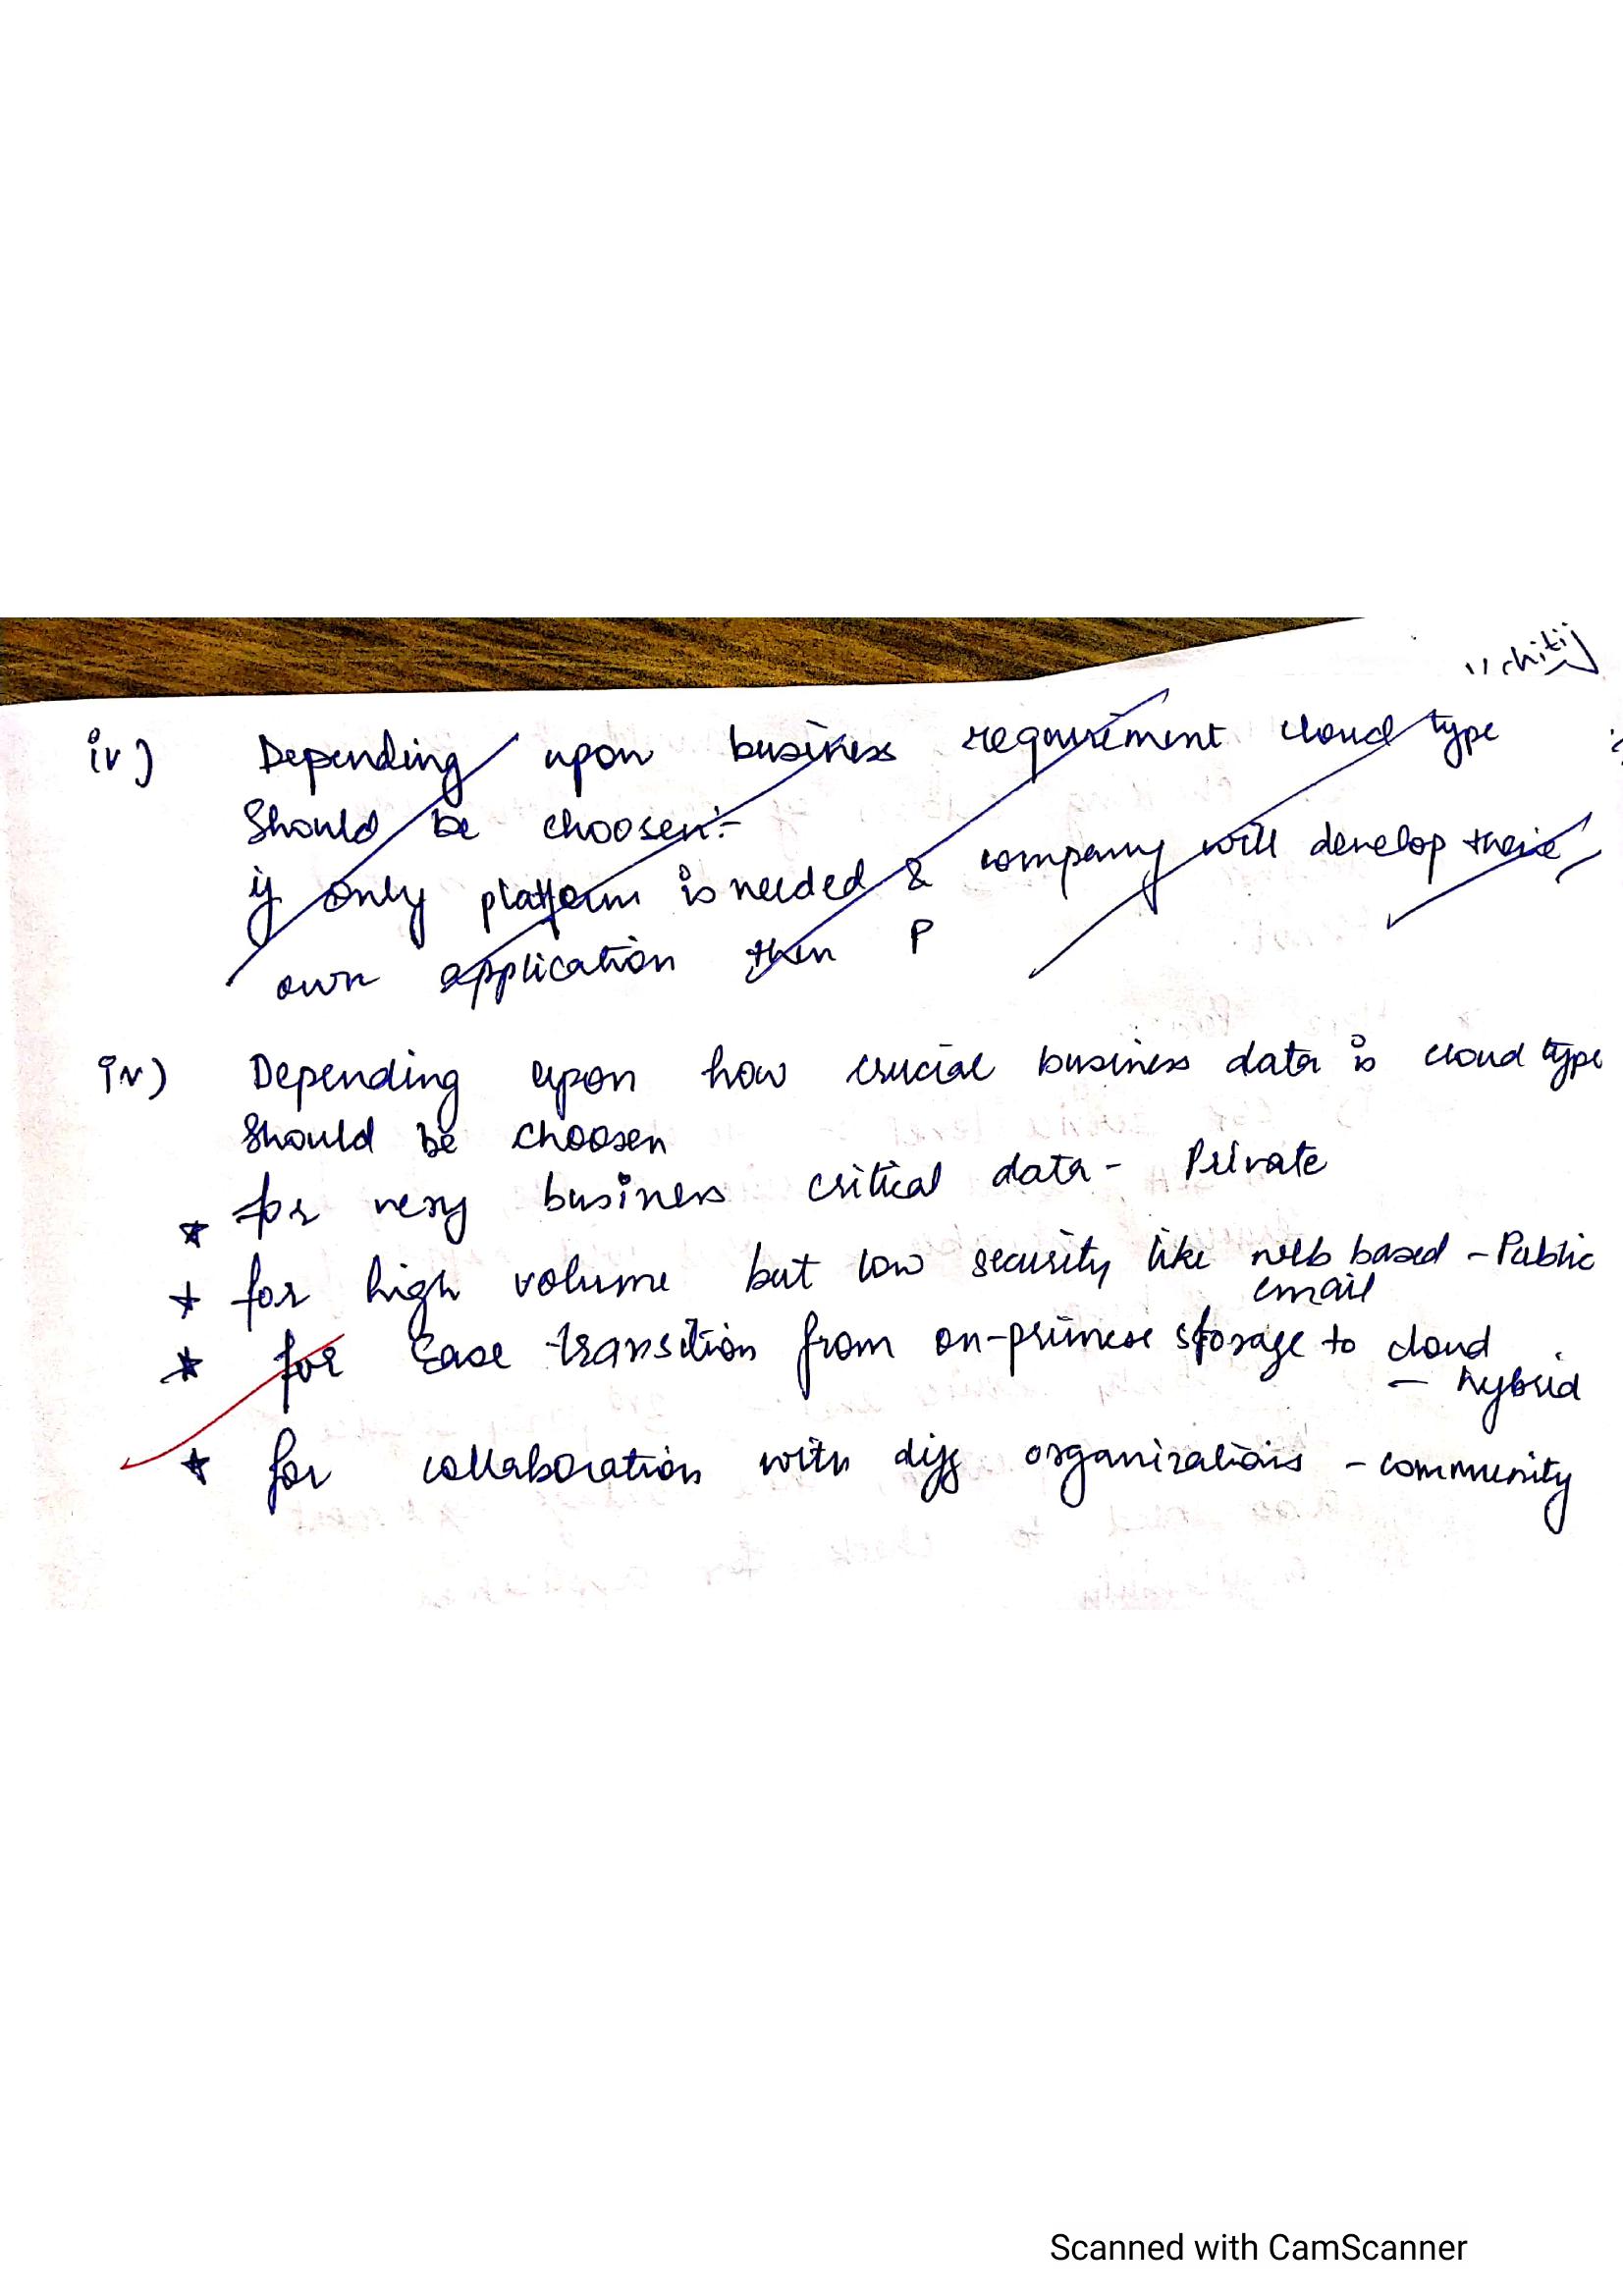 iv) Depending upon business requirement cloud type
Should be choosen:-
if only platform is needed & company will develop their
own application then P
iv) Depending upon how crucial business data is cloud type
Should be choosen
★ for very business critical data - Private
★ for high volume but low security like web based - Public
email
★ for Ease transition from on-primese storage to cloud
- hybrid
★ for collaboration with diff organizations - community
Scanned with CamScanner